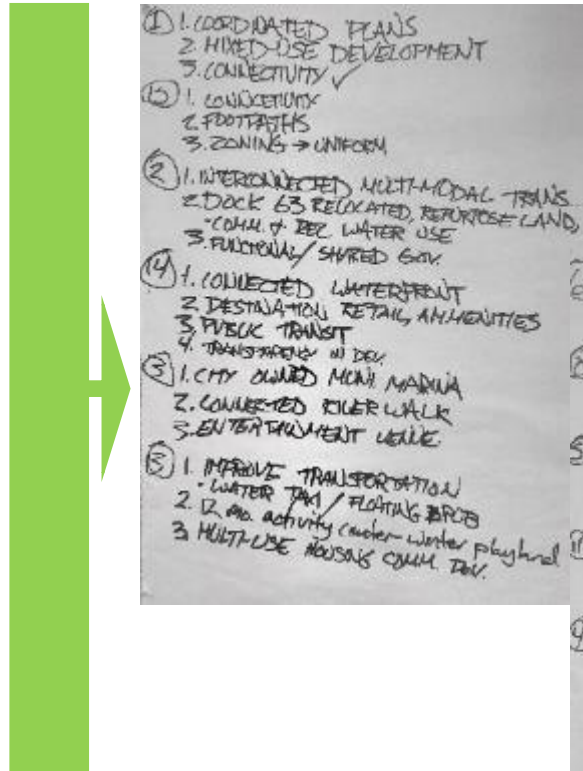 ① 1. COORDINATED PLANS
2. MIXED-USE DEVELOPMENT
3. CONNECTIVITY ✓
⑮ 1. CONNECTIVITY
2. FOOTPATHS
3. ZONING → UNIFORM
② 1. INTERCONNECTED MULTI-MODAL TRANS
2. DOCK 63 RELOCATED, REPURPOSE LAND,
- COMM. & REC. WATER USE
3. FUNCTIONAL / SHARED GOV.
⑭ 1. CONNECTED WATERFRONT
2. DESTINATION RETAIL, AMMENITIES
3. PUBLIC TRANSIT
4. TRANSPARENCY IN DEV.
③ 1. CITY OWNED MUNI MARINA
2. CONNECTED RIVERWALK
3. ENTERTAINMENT VENUE
1. IMPROVE TRANSPORTATION
- WATER TAXI / FLOATING
2. 12 mo. activity center - winter playland
3. MULTI-USE HOUSING COMM. DEV.